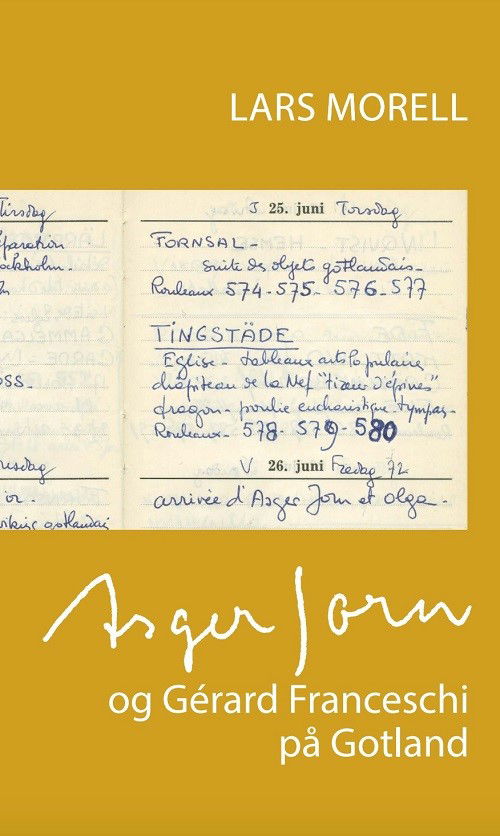 LARS MORELL
Tirsdag
J 25. juni Torsdag
FORNSAL-
suite des objets gotlandais-
Rouleaux 574-575-576-577
TINGSTÄDE
Eglise - tableaux arts populaire
chapiteau de la Nef "tireur d'épines"
dragon - poulie eucharistique - tympas-
Rouleaux - 578 579-580
V 26. juni Fredag
arrivée d'Asger Jorn et olga -
Asger Jorn
og Gérard Franceschi
på Gotland